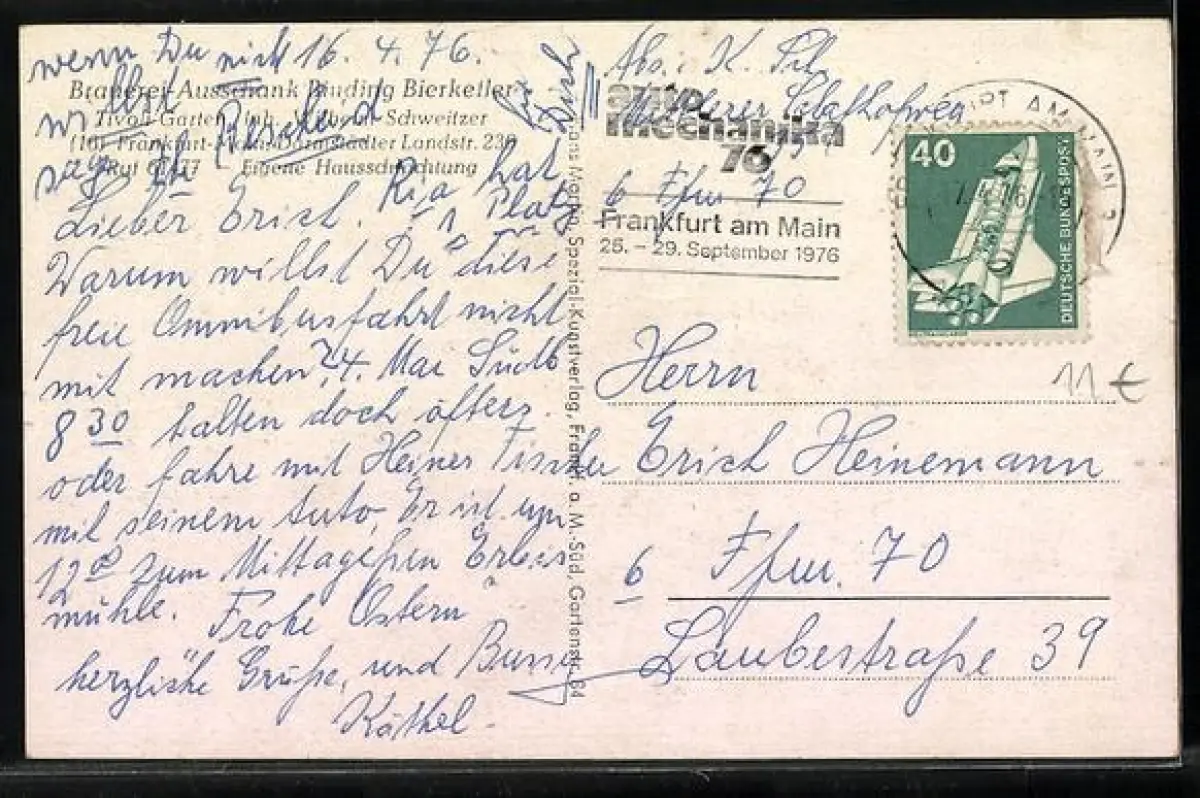 wenn Du nicht 16. 4. 76.
Brauerei-Ausschank Binding Bierkeller
willst
Tivoli-Garten, Inh. Wilhelm Schweitzer
(16) Frankfurt-Main, Darmstädter Landstr. 236
sage Bescheid
Ruf 61177 - Eigene Hausschlachtung
Ria hat
für Euch
1 Platz
Lieber Erich.
Warum willst Du diese
freie Omnibusfahrt nicht
mit machen? 4. Mai Südb
8 30 halten doch öfters.
oder fahre mit Heiner Fischer
mit seinem Auto, Er ist um
12 00 zum Mittageßen Erbis
mühle. Frohe Ostern
herzliche Grüße, und Bussi
Käthel
Hans Martin, Spezial-Kunstverlag, Frankf. a. M.-Süd, Gartenstr. 84
Abs.: K.
Mittlerer
6 Ffm 70
auto
mechanika
76
Frankfurt am Main
26. – 29. September 1976
FURT AM MAIN 2
40
DEUTSCHE BUNDESPOST
11 €
Herrn
Erich Heinemann
6 Ffm. 70
Laubestraße 39